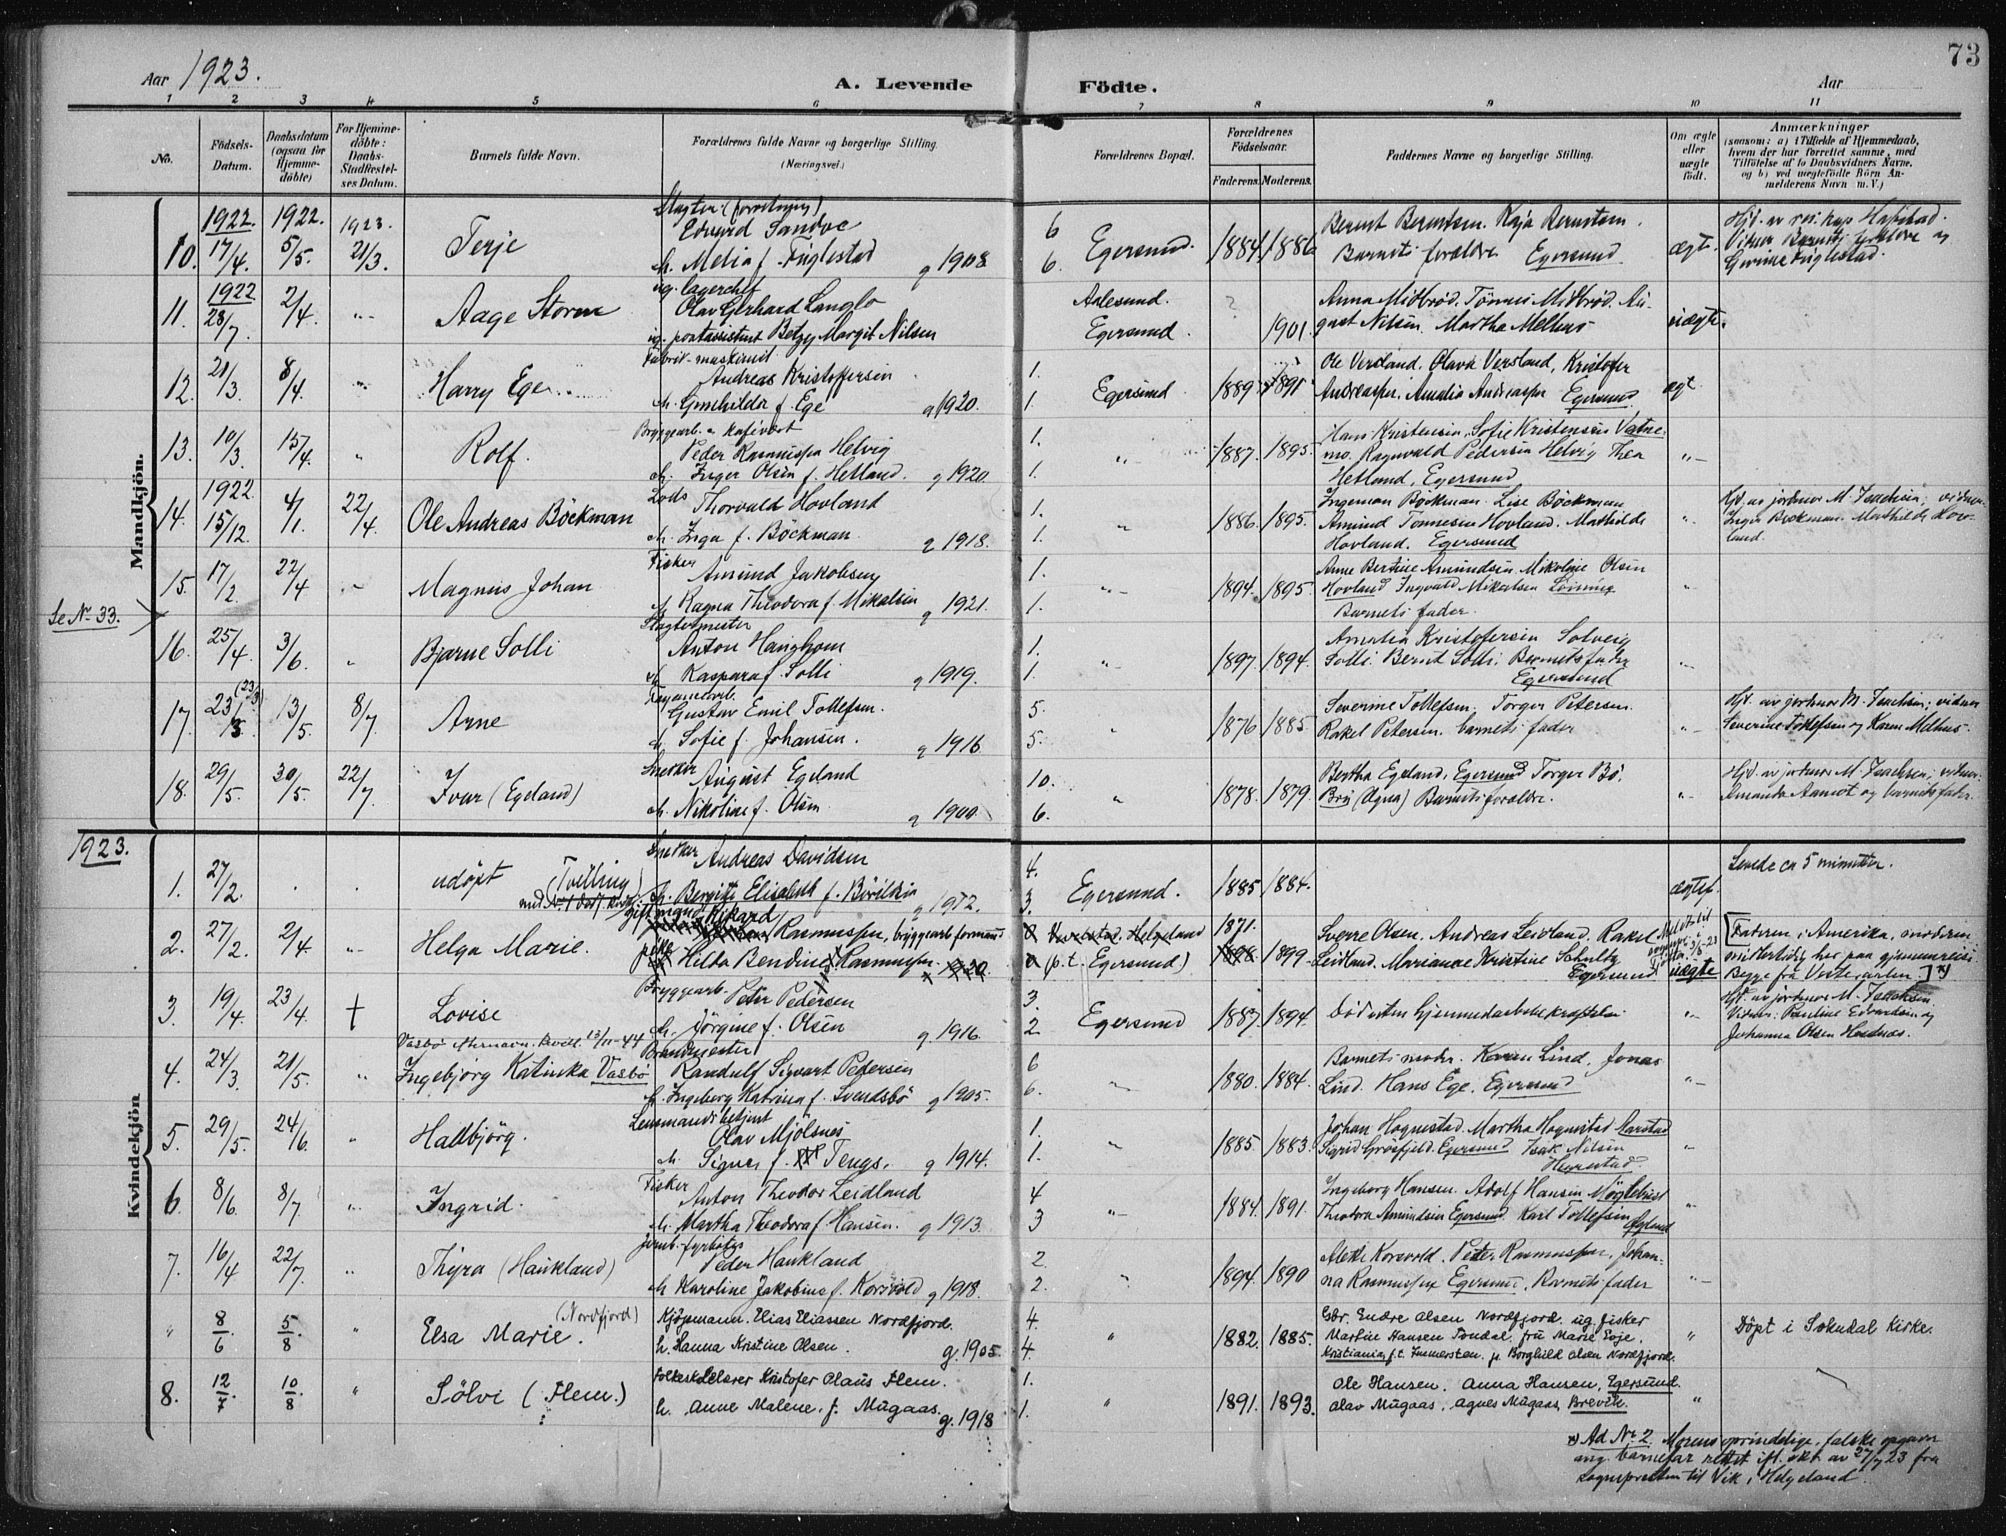 73
Aar 1923.
A. Levende Födte.
Aar
1 2 3 4 5 6 7 8 9 10 11
No.
Födsels-Datum.
Daabsdatum (ogsaa för Hjemme-döbte)
For Hjemme-döbte: Daabs-Stadfæstel-ses Datum.
Barnets fulde Navn.
Forældrenes fulde Navne og borgerlige Stilling. (Næringsvei.)
Forældrenes Bopæl.
Forældrenes Födselsaar.
Faderens. Moderens.
Faddernes Navne og borgerlige Stilling.
Om ægte eller uægte födt.
Anmærkninger
(saasom: a) i Tilfælde af Hjemmedaab,
hvem der har forrettet samme, med
Tilföielse af to Daabsvidners Navne,
og b) ved uægtefödte Börn An-
melderens Navn m. V.)
Mandkjön.
10. 1922. 17/4. 1922. 5/5. 1923. 21/3. Terje
Edvard Sandve
h. Melia f. Fuglestad g 1908
6 6. Egersund. 1884 1886
Bernt Berntsen. Kaja Berntsen.
Barnets forældre Egersund
ægt.
11. 1922 28/7. 2/4. Aage Storm
ug. lagerchef
Olav Gerhard Langlo
ug. postassistent Betzy Margit Nilsen
Aalesund. Egersund. ? 1901.
Anna Midbrød. Tønnes Midbrød. Au-
gust Nilsen. Martha Melhus
uægte.
12. 21/3. 8/4. Harry Ege
Andreas Kristofersen
h. Gunhilda f. Ege g 1920.
1. 1. Egersund 1889 1891
Ole Versland. Olava Versland, Kristofer
Andreassen. Amalia Andreassen Egersund.
ægt
13. 10/3. 15/4. Rolf.
Peder Rasmussen Helvig
h. Inger Olsen f. Hetland. g 1920.
1. 1. 1887. 1895.
Hans Kristensen, Sofie Kristensen Vatne-
mo. Ragnvald Pedersen Helvig Thea
Hetland, Egersund
14. 1922 15/12. 4/1. 22/4. Ole Andreas Böckman
Lods Thorvald Hovland
h. Inga f. Böckman. g 1918.
1. 1. 1886. 1895.
Ingeman Böckman. Lise Böckman
Amund Tønnesen Hovland. Mathilde
Hovland. Egersund
Hjd. av jordmor M. Isachsen; vidner
Inger Böckman. Mathilde Hov-
land.
15. 17/2. 22/4 Magnus Johan
Fisker Amund Jakobsen
h Ragna Theodora f. Mikalsen g 1921.
1. 1. 1894. 1895.
Anne Bertine Amundsen. Mikoline Olsen
Hovland Ingvald Mikalsen
Barnets fader.
Se No 33.
16. 25/4. 3/6. Bjarne Solli
Slagtermester
Anton Haughom
h Kaspara f. Solli g 1919.
1. 1. 1897. 1894.
Amalia Kristofersen Solveig
Solli. Bernt Solli. Barnets fader
Egersund
17. 23/3 (23/3) 13/5. 8/7. Arne
Gustav Emil Tollefsen.
h. Sofie f. Johansen. g 1916
5. 5. 1876 1885
Severine Tollefsen, Torger Petersen.
Rakel Petersen. barnets fader
Hjd. av jordmor M. Isachsen; vidner
Severine Tollefsen og Karen Melhus.
18. 29/5. 30/5. 22/7. Ivar (Egeland)
Snekker August Egeland
h. Nikoline f. Olsen g 1900.
10. 6. 1878. 1879
Bertha Egeland, Egersund Torger Bö,
Bru (Ogna) Barnets forældre.
Hjd. av jordmor M. Isachsen; vidner
Amanda Aamot og barnets fader.
1923.
Kvindekjön
1. 27/2. udöpt (Tvilling
Snekker Andreas Davidsen
h. Bergitte Elisabeth f. g 1912.
4. 3. Egersund. 1885 1884.
ægtef.
Levede ca 5 minutter.
2. 27/2. 2/4. Helga Marie.
Rikard Rasmussen, bryggearb. formand
pike Hilda Bendine Rasmussen.
Helgeland
(p.t. Egersund) 1871. 1899
Sverre Olsen. Andreas Leidland. Rakel
Leidland. Marianne Kristine Schultz
Egersund
uægte
Faderen i Amerika, moderen
midlertidig her paa gjennemreise.
Begge fra Vesteraalen.
3. 19/4. 23/4. † Lovise
Bryggearb. Peter Pedersen
h. Jörgine f. Olsen g 1916.
3. 2 Egersund 1887. 1894.
Död uten hjemmedaabsbekræftelse
Hjd. av jordmor M. Isachsen.
Vidner: Pauline Edvardsen og
Johanna Olsen
4. 24/3. 21/5. Ingebjörg Katinka Vasbö
13/11-44
Brandmester
Randulf Sigvart Pedersen
h. Ingeborg Katrina f. Svendsbö g 1905.
6 6. 1880. 1884.
Barnets moder. Karen Lind. Jonas
Lind. Hans Ege. Egersund
5. 29/5. 24/6. Hallbjörg.
Lensmandsbetjent
Olav Mjölsnes
h Signe f. Tengs. g 1914.
1. 1. 1885. 1883.
Johan Hognestad. Martha Hognestad Aarstad
Sigrid Grösfjeld. Egersund Isak Nilsen
Hegrestad.
6. 8/6. 8/7. Ingrid.
Fisker
Anton Theodor Leidland
h. Martha Theodora f. Hansen. g 1913.
4 3 1884. 1891.
Ingeborg Hansen. Adolf Hansen Möglebust
Theodora Amundsen Egersund Karl Tollefsen
7. 16/4 22/7. Thyra (Haukland)
Peder Haukland
h Karoline Jakobine f. Korsvold g 1918.
2. 2. 1894. 1890
Alette Korsvold. Peder Rasmussen, Johan-
na Rasmussen Egersund, Barnets fader
" 8/6 5/8 " Elsa Marie. (Nordfjord)
Kjöpmann. Elias Eliassen Nordfjord.
h. Hanna Kristine Olsen. g. 1905.
4. 4. " 1882. 1885.
Gbr. Endre Olsen Nordfjord. ug. fisker
Martin Hansen Tondal. fru Marie Eoje.
Kristiania, p. Borghild Olsen Nordfjord.
"
Döpt i Sokndal Kirke.
8. 12/7 10/8 " Sölvi (Flem.)
Folkeskolelærer Kristofer Olaus Flem.
h. Anne Malene. f. Mugaas. g. 1918
1. 1. " 1891. 1893.
Ole Hansen. Anna Hansen, Egersund.
Olav Mugaas, Agnes Mugaas, Brevik.
"
Ad No 2. Morens oprindelige, falske opgaver
ang. barnefar rettet ifl. skr. av 27/7 23 fra
sognepresten til Vik i Helgeland.